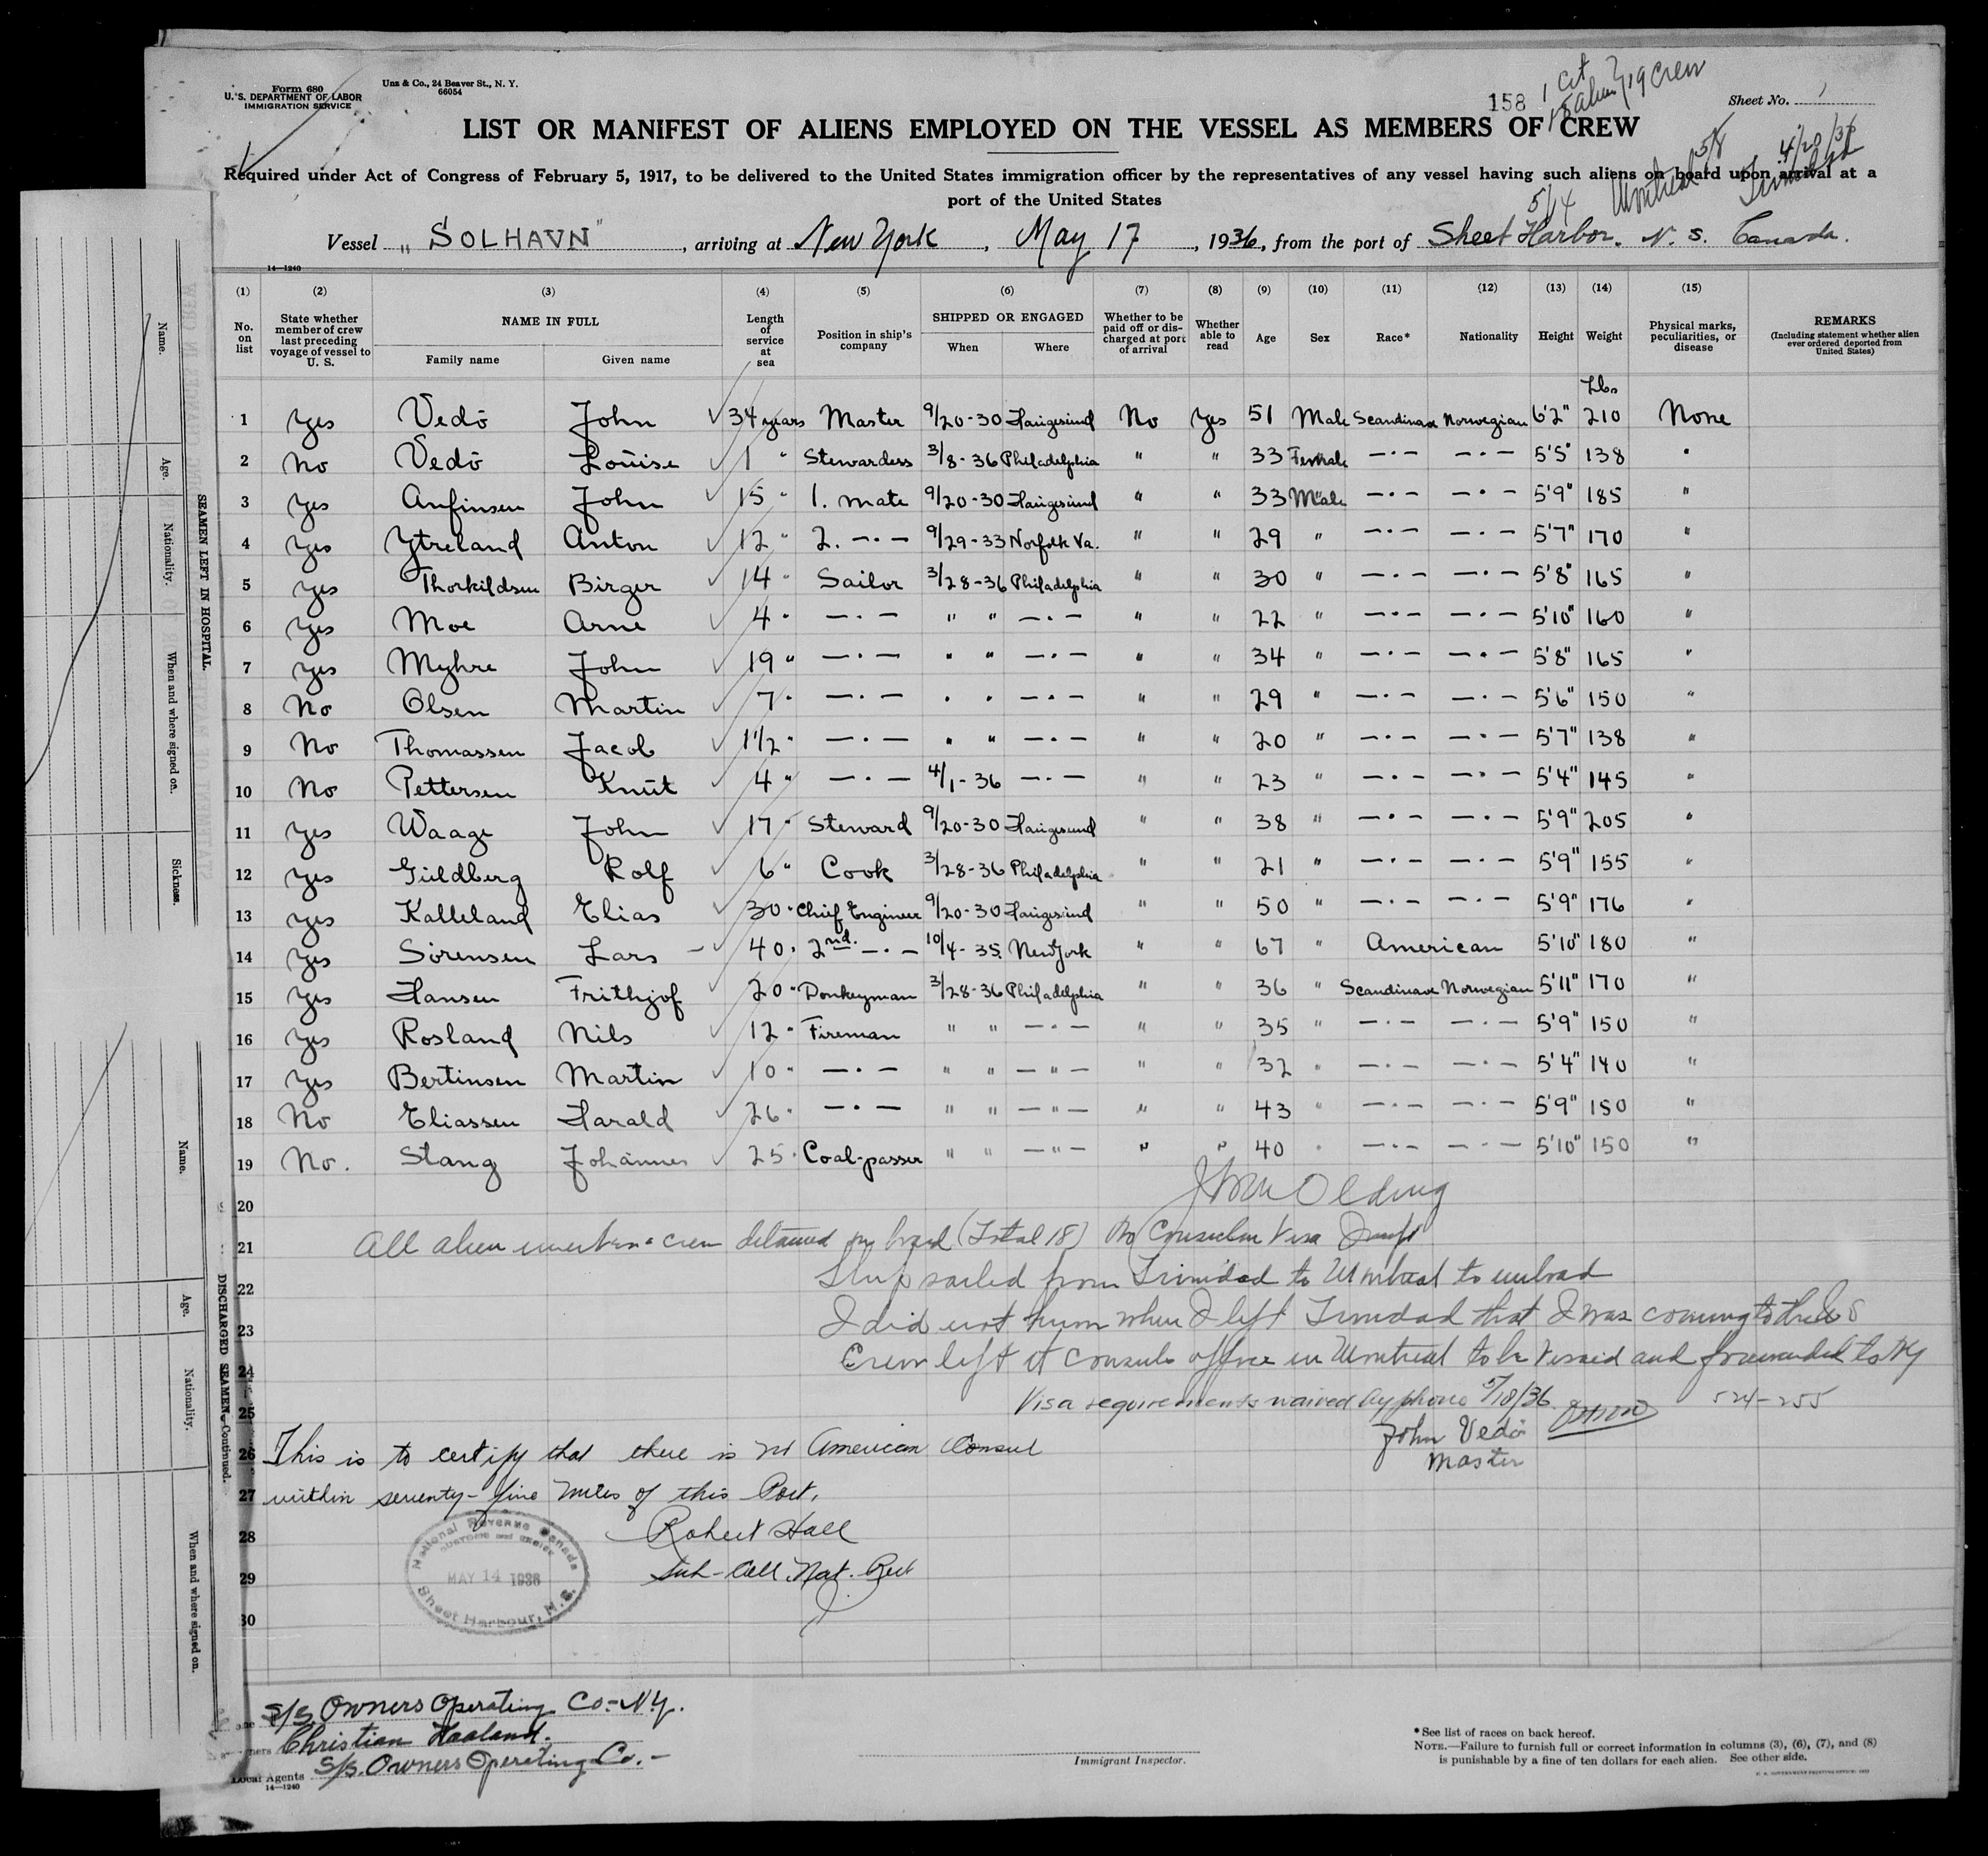 Form 680
U. S. DEPARTMENT OF LABOR
IMMIGRATION SERVICE
Unz & Co., 24 Beaver St., N. Y.
66054
158
1 cit
18 alien } 19 crew
Sheet No. 1
LIST OR MANIFEST OF ALIENS EMPLOYED ON THE VESSEL AS MEMBERS OF CREW
Required under Act of Congress of February 5, 1917, to be delivered to the United States immigration officer by the representatives of any vessel having such aliens on board upon arrival at a
port of the United States
Montreal 5/8
Trinidad 4/20/36
5/14
Vessel „ SOLHAVN ", arriving at New York, May 17, 1936, from the port of Sheet Harbor. N. S. Canada.
14—1240
(1) (2) (3) (4) (5) (6) (7) (8) (9) (10) (11) (12) (13) (14) (15)
No. on list
State whether member of crew last preceding voyage of vessel to U. S.
NAME IN FULL
Family name Given name
Length of service at sea
Position in ship's company
SHIPPED OR ENGAGED
When Where
Whether to be paid off or discharged at port of arrival
Whether able to read
Age Sex Race* Nationality Height Weight
Physical marks, peculiarities, or disease
REMARKS
(Including statement whether alien ever ordered deported from United States)
Lbs
1 Yes Vedö John 34 years Master 9/20-30 Haugesund No Yes 51 Male Scandinav Norwegian 6'2" 210 None
2 No Vedö Louise 1 " Stewardess 3/8-36 Philadelphia " " 33 Female —·— —·— 5'5" 138 "
3 Yes Anfinsen John 15 " 1. mate 9/20-30 Haugesund " " 33 Male —·— —·— 5'9" 185 "
4 Yes Ytreland Anton 12 " 2. —·— 9/29-33 Norfolk Va. " " 29 " —·— —·— 5'7" 170 "
5 Yes Thorkildsen Birger 14 " Sailor 3/28-36 Philadelphia " " 30 " —·— —·— 5'8" 165 "
6 Yes Moe Arne 4 " —·— " " —·— " " 22 " —·— —·— 5'10" 160 "
7 Yes Myhre John 19 " —·— " " —·— " " 34 " —·— —·— 5'8" 165 "
8 No Olsen Martin 7 " —·— " " —·— " " 29 " —·— —·— 5'6" 150 "
9 No Thomassen Jacob 1 1/2 " —·— " " —·— " " 20 " —·— —·— 5'7" 138 "
10 No Pettersen Knut 4 " —·— 4/1-36 —·— " " 23 " —·— —·— 5'4" 145 "
11 Yes Waage John 17 " Steward 9/20-30 Haugesund " " 38 " —·— —·— 5'9" 205 "
12 Yes Guldberg Rolf 6 " Cook 3/28-36 Philadelphia " " 21 " —·— —·— 5'9" 155 "
13 Yes Kalleland Elias 30 " Chief Engineer 9/20-30 Haugesund " " 50 " —·— —·— 5'9" 176 "
14 Yes Sörensen Lars 40 " 2nd. —·— 10/4-35 New York " " 67 " American 5'10" 180 "
15 Yes Hansen Frithjof 20 " Donkeyman 3/28-36 Philadelphia " " 36 " Scandinave Norwegian 5'11" 170 "
16 Yes Rosland Nils 12 " Fireman " " —·— " " 35 " —·— —·— 5'9" 150 "
17 Yes Bertinsen Martin 10 " —·— " " —"— " " 32 " —·— —·— 5'4" 140 "
18 No Eliassen Harald 26 " —·— " " —"— " " 43 " —·— —·— 5'9" 150 "
19 No. Stang Johannes 25 " Coal-passer " " —"— " " 40 " —·— —·— 5'10" 150 "
20 Olding
21 All alien members crew detained on board (Total 18) No Consular Visa
22 Ship sailed from Trinidad to Montreal to unload
23 I did not know when I left Trinidad that I was coming to the U S
24 Crew left at consuls office in Montreal to be visaed and forwarded to NY
25 Visa requirements waived by phone 5/18/36 524-255
John Vedö
Master
26 This is to certify that there is no American Consul
27 within seventy-five miles of this Port.
28 Robert Hall
29 Sub-Coll. Nat. Rev
30
National Revenue Canada
CUSTOMS and EXCISE
MAY 14 1936
Sheet Harbour, N.S.
S/S. Owners Operating Co.-N.Y.
Christian Haaland.
Local Agents S/S. Owners Operating Co.-
14—1240
Immigrant Inspector.
*See list of races on back hereof.
NOTE.—Failure to furnish full or correct information in columns (3), (6), (7), and (8)
is punishable by a fine of ten dollars for each alien. See other side.
SEAMEN LEFT IN HOSPITAL.
Name.
Age.
Nationality.
When and where signed on.
Sickness.
DISCHARGED SEAMEN—Continued.
Name.
Age.
Nationality.
When and where signed on.